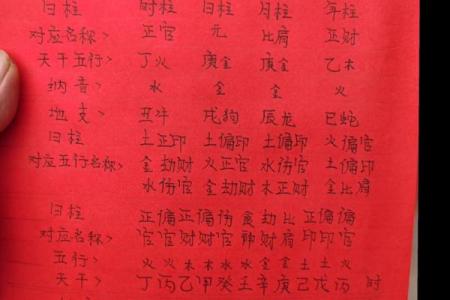 日柱 时柱 日柱 月柱 年柱
对应名称> 正官 元 比肩 正财
天干五行> 丁火 庚金 庚金 乙木
纳音> 水 金 金 火
地支> 丑牛 戌狗 辰龙 巳蛇
日柱 土正印 土偏印 土偏印 火偏官
对应五行名称> 金劫财 火正官 水伤官 土偏印
水伤官 金劫财 木正财 金比肩
日柱 正偏正偏伤食劫比正偏偏
对应名称> 官官财财官神财肩印印官
五行> 火火木木水水金金土土火
天干> 丁丙乙甲癸壬辛庚己戊丙 时